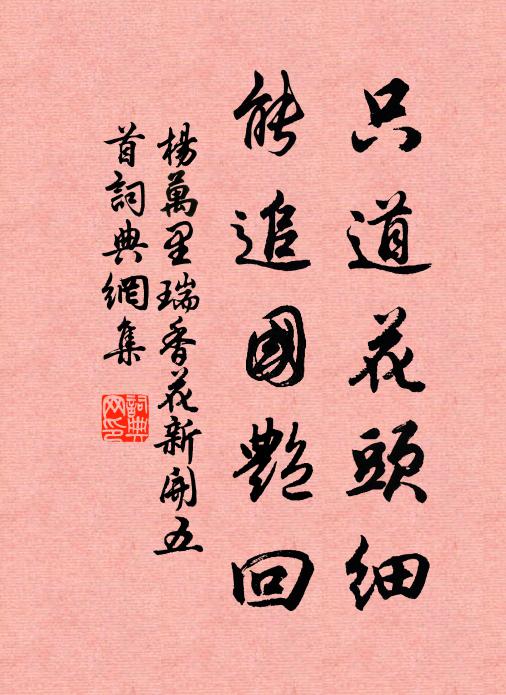 只道花頭細
能追國艷回
楊萬里瑞香花新開五
首詞典網集
詞典
网印